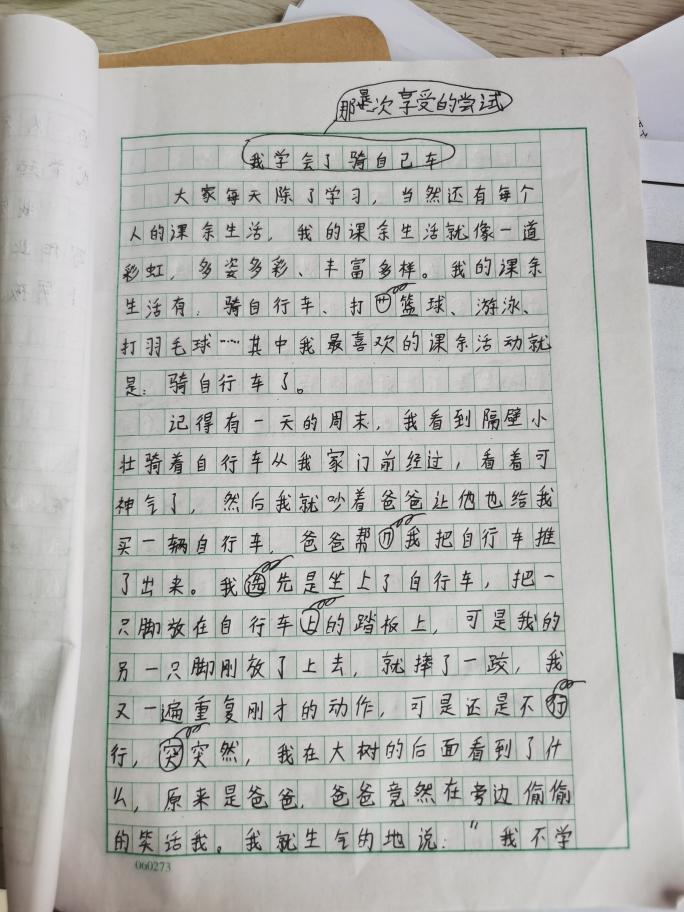 那是次享受的尝试
我学会了骑自己车
大家每天除了学习，当然还有每个
人的课余生活，我的课余生活就像一道
彩虹，多姿多彩、丰富多样。我的课余
生活有：骑自行车、打篮球、游泳、
打羽毛球……其中我最喜欢的课余活动就
是：骑自行车了。
记得有一天的周末，我看到隔壁小
壮骑着自行车从我家门前经过，看着可
神气了，然后我就吵着爸爸让他也给我
买一辆自行车，爸爸帮我把自行车推
了出来。我先是坐上了自行车，把一
只脚放在自行车的踏板上，可是我的
另一只脚刚放了上去，就摔了一跤，我
又一遍重复刚才的动作，可是还是不
行，突然，我在大树的后面看到了什
么，原来是爸爸，爸爸竟然在旁边偷偷
的笑话我。我就生气的地说：“我不学
060273